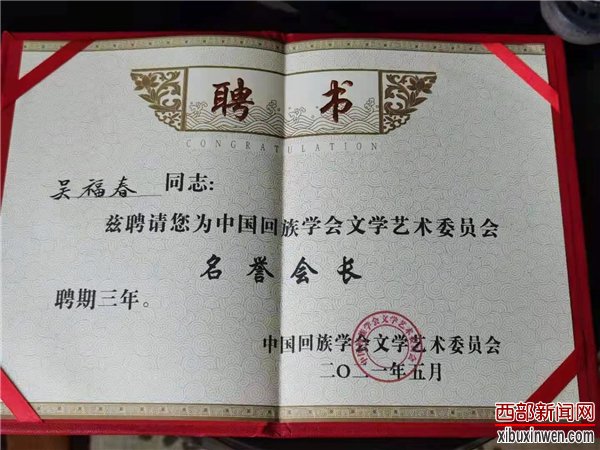 聘书
CONGRATULATION
吴福春 同志:
兹聘请您为中国回族学会文学艺术委员会
名誉会长
聘期三年。
中国回族学会文学艺术委员会
二〇二一年五月
中国回族学会文学艺术委员会
西部新闻网
xibuxinwen.com